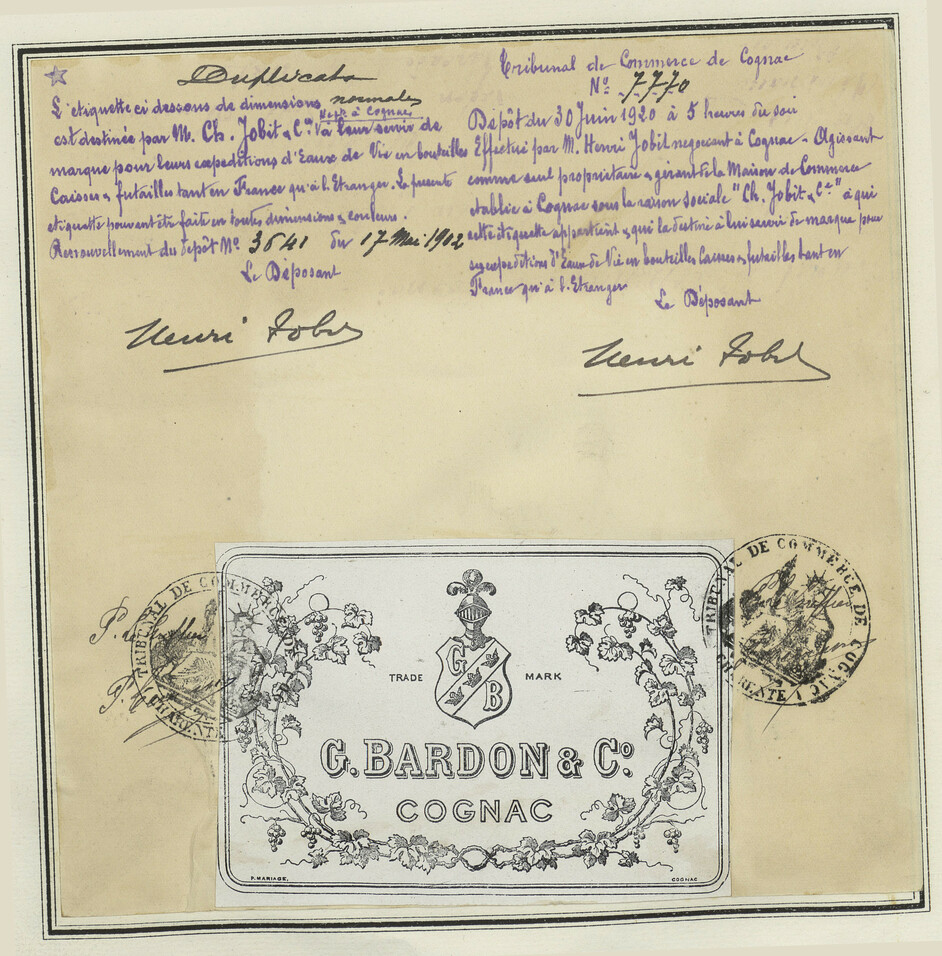 Duplicata
L'etiquette ci dessous de dimensions normales
est destinée par M. Ch. Jobit & Cie Negt à Cognac à leur servir de
marque pour leurs expeditions d'Eaux de Vie en bouteilles
Caisses & futailles tant en France qu'à l'Etranger. La presente
etiquette pouvant être faite en toutes dimensions & couleurs.
Renouvellement du depôt No 3641 du 17 Mai 1902
Le Déposant
Henri Jobit
Tribunal de Commerce de Cognac
No 7770
Depôt du 30 Juin 1920 à 5 heures du soir
Effectué par M. Henri Jobit negociant à Cognac - Agissant
comme seul propriétaire & gérant de la Maison de Commerce
etablie à Cognac sous la raison sociale "Ch. Jobit & Cie" à qui
cette étiquette appartient & qui la destine à lui servir de marque pour
ses expeditions d'Eaux de Vie en bouteilles Caisses & futailles tant en
France qu'à l'Etranger
Le Déposant
Henri Jobit
TRIBUNAL DE COMMERCE DE
CHARENTE
TRIBUNAL DE COMMERCE DE COGNAC
CHARENTE
G
B
TRADE MARK
G. BARDON & Co.
COGNAC
P. MARIAGE.
COGNAC